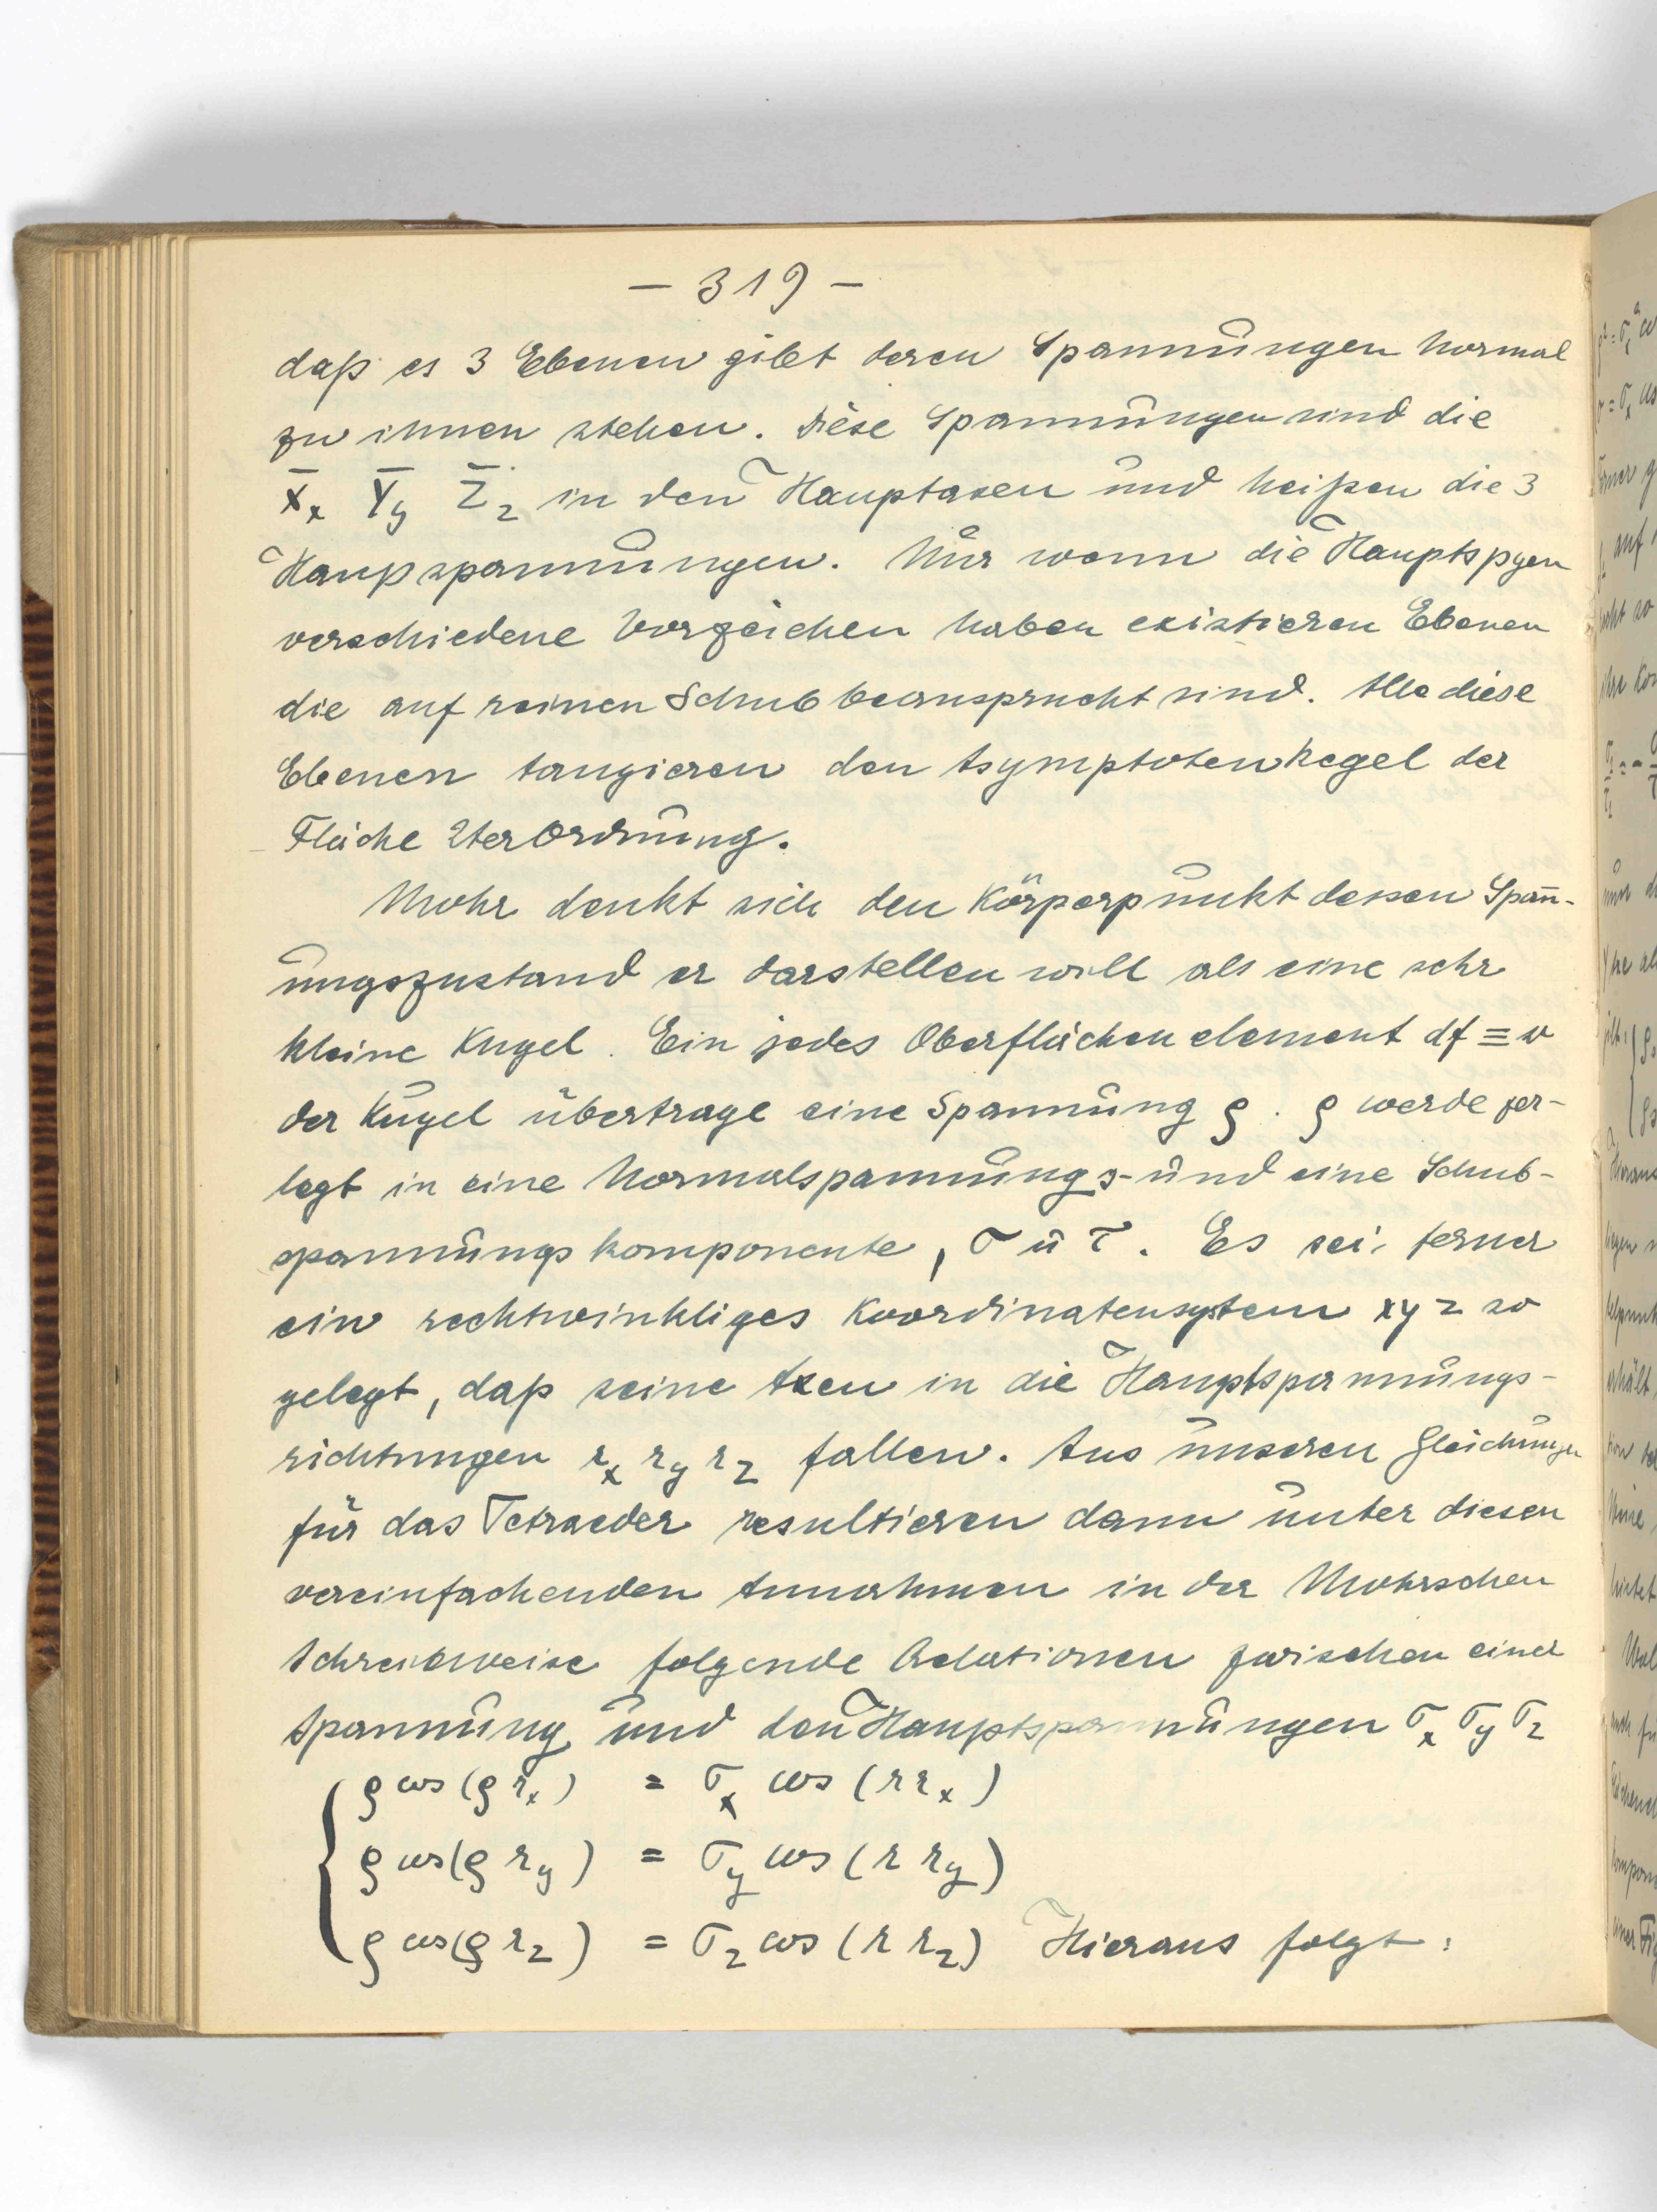 – 319 –
daß es 3 Ebenen gibt deren Spannungen normal
zu ihnen stehen. Diese Spannungen sind die
X̄ₓ Ȳy Z̄z in den Hauptaxen und heißen die 3
Haupspannungen. Nur wenn die Hauptspgen
verschiedene Vorzeichen haben existieren Ebenen
die auf reinen Schub beansprucht sind. Alle diese
Ebenen tangieren den Asymptotenkegel der
Fläche 2ter Ordnung.
Mohr denkt sich den Körperpunkt dessen Span̄-
ungszustand er darstellen will als eine sehr
kleine Kugel. Ein jedes Oberflächenelement df ≡ w
der Kugel übertrage eine Spannung ρ. ρ werde zer-
legt in eine Normalspannungs- und eine Schub-
spannungskomponente, σ u τ. Es sei ferner
ein rechtwinkliges Koordinatensystem xyz so
gelegt, daß seine Axen in die Hauptspannungs-
richtungen rₓ ry rz fallen. Aus unseren Gleichungen
für das Tetraeder resultieren dann unter diesen
vereinfachenden Annahmen in der Mohrschen
Schreibweise folgende Relationen zwischen einer
Spannung und den Hauptspannungen σₓ σy σz
ρ cos (ρ rₓ) = σₓ cos (r rₓ)
ρ cos (ρ ry) = σy cos (r ry)
ρ cos (ρ rz) = σz cos (r rz) Hieraus folgt: